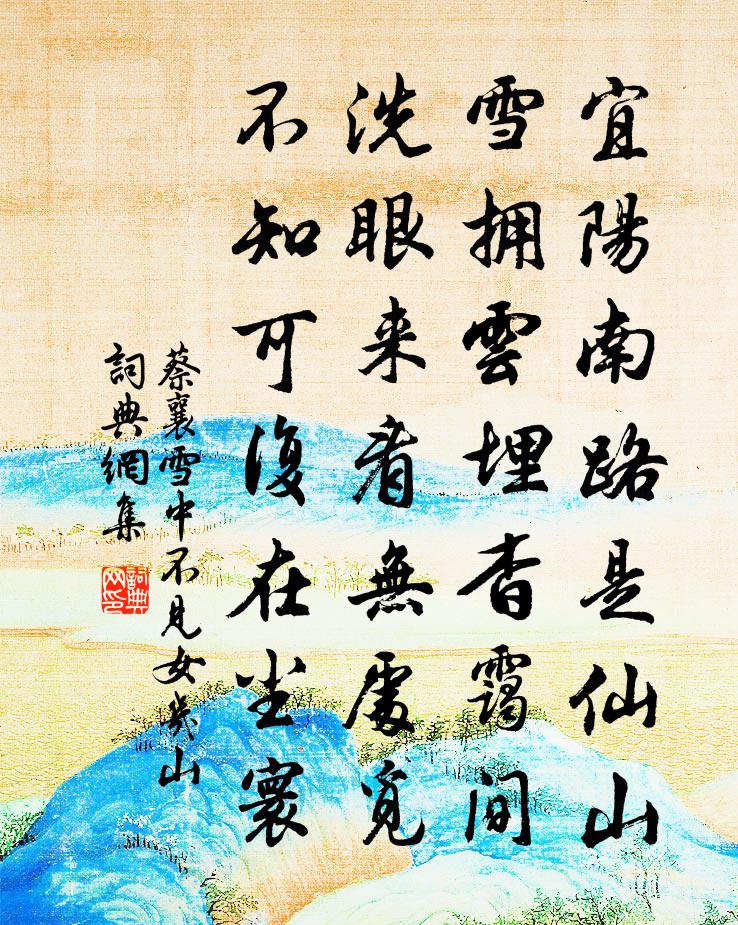 宜陽南路是仙山
雪拥雲埋杳靄間
洗眼来看無處覓
不知可復在尘寰
蔡襄雪中不見女幾山
詞典網集
詞典網印